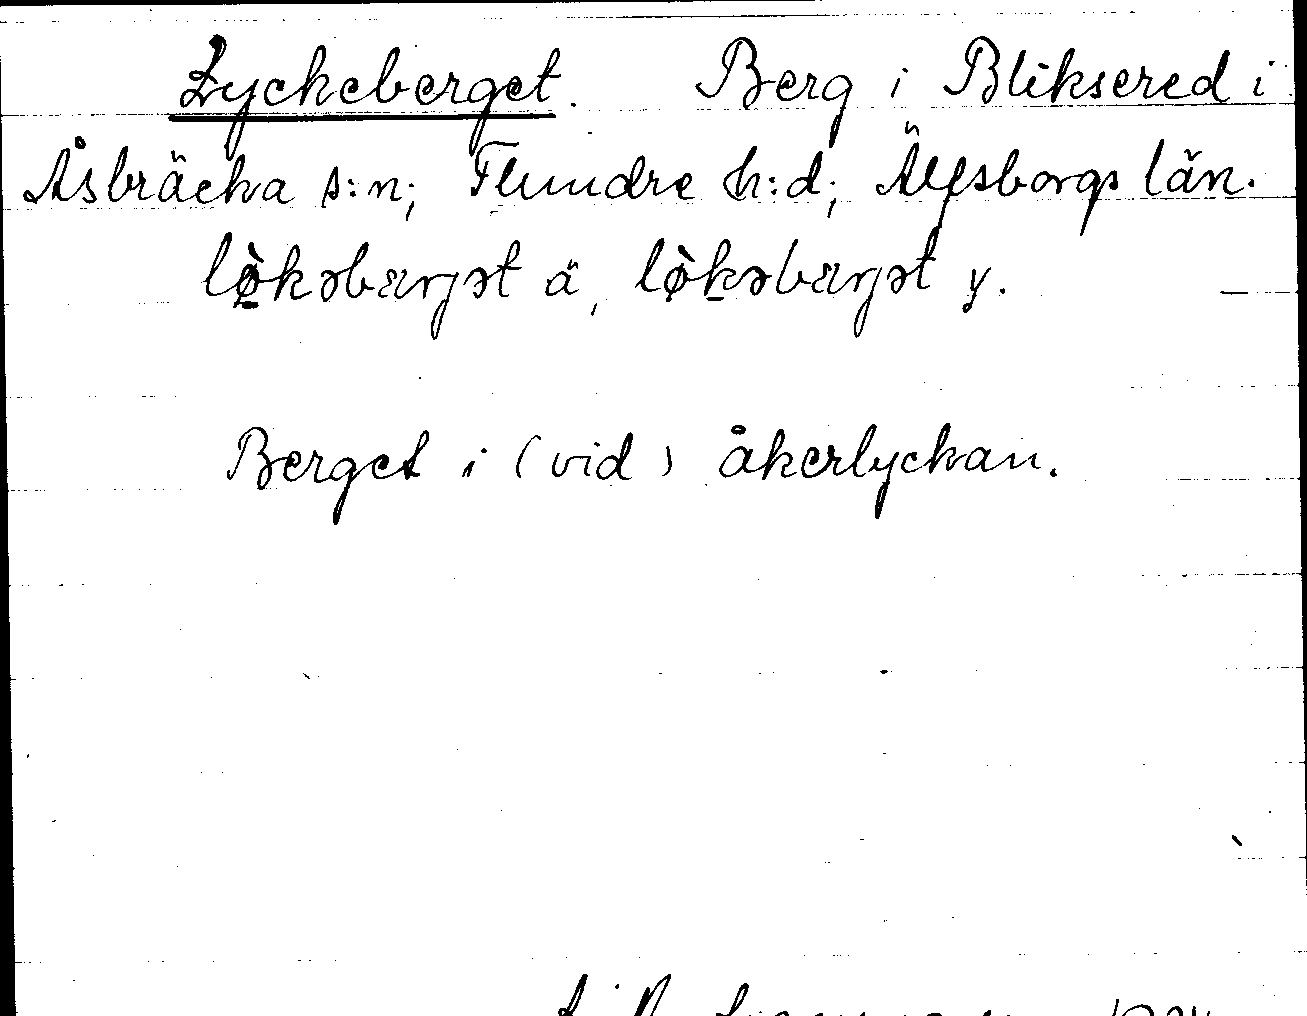 Lyckeberget. Berg i Bliksered i
Åsbräcka s:n; Flundre h:d; Älfsborgs län.
lø̀kəbærjət ä, lø̀kəbærjət y.
Berget i (vid) åkerlyckan.